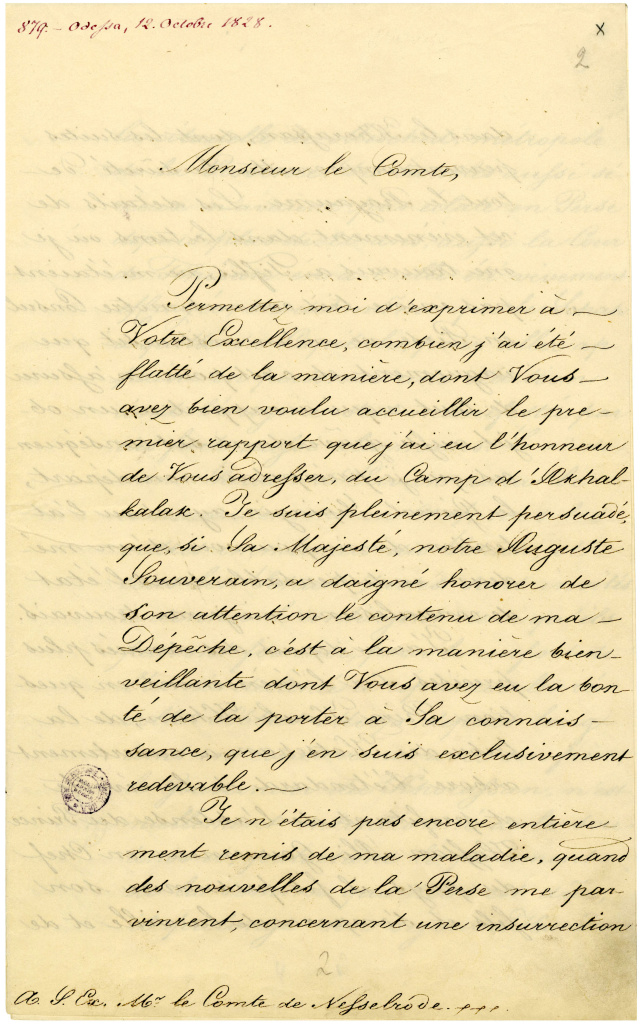 879. — Odessa, 12. Octobre 1828.
x
2
Monsieur le Comte,
Permettez moi d'exprimer à —
Votre Excellence, combien j'ai été —
flatté de la manière, dont Vous —
avez bien voulu accueillir le pre-
mier rapport que j'ai eu l'honneur
de Vous adresser, du Camp d'Akhal-
kalak. Je suis pleinement persuadé,
que, si Sa Majesté, notre Auguste
Souverain, a daigné honorer de
son attention le contenu de ma —
Dépêche, c'est à la manière bien-
veillante dont Vous avez eu la bon-
té de la porter à Sa connais-
sance, que j'en suis exclusivement
redevable. —
Je n'étais pas encore entière-
ment remis de ma maladie, quand
des nouvelles de la Perse me par-
vinrent, concernant une insurrection
2
A. S. Ex. Mr le Comte de Nesselrode.